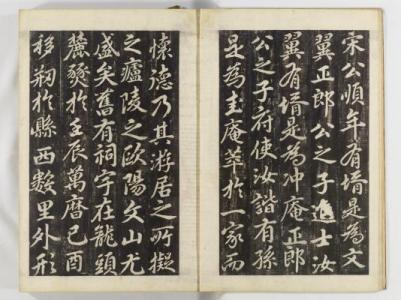 宋公順年有壻是為文
翼正郎公之子進士汝
翼有壻是為冲庵正郎
公之子府使汝諧有孫
是為圭庵萃於一家而
懷德乃其游居之所擬
之廬陵之歐陽文山尤
盛矣舊有祠宇在龍頭
麓燹於壬辰萬曆己酉
移剏於縣西數里外形